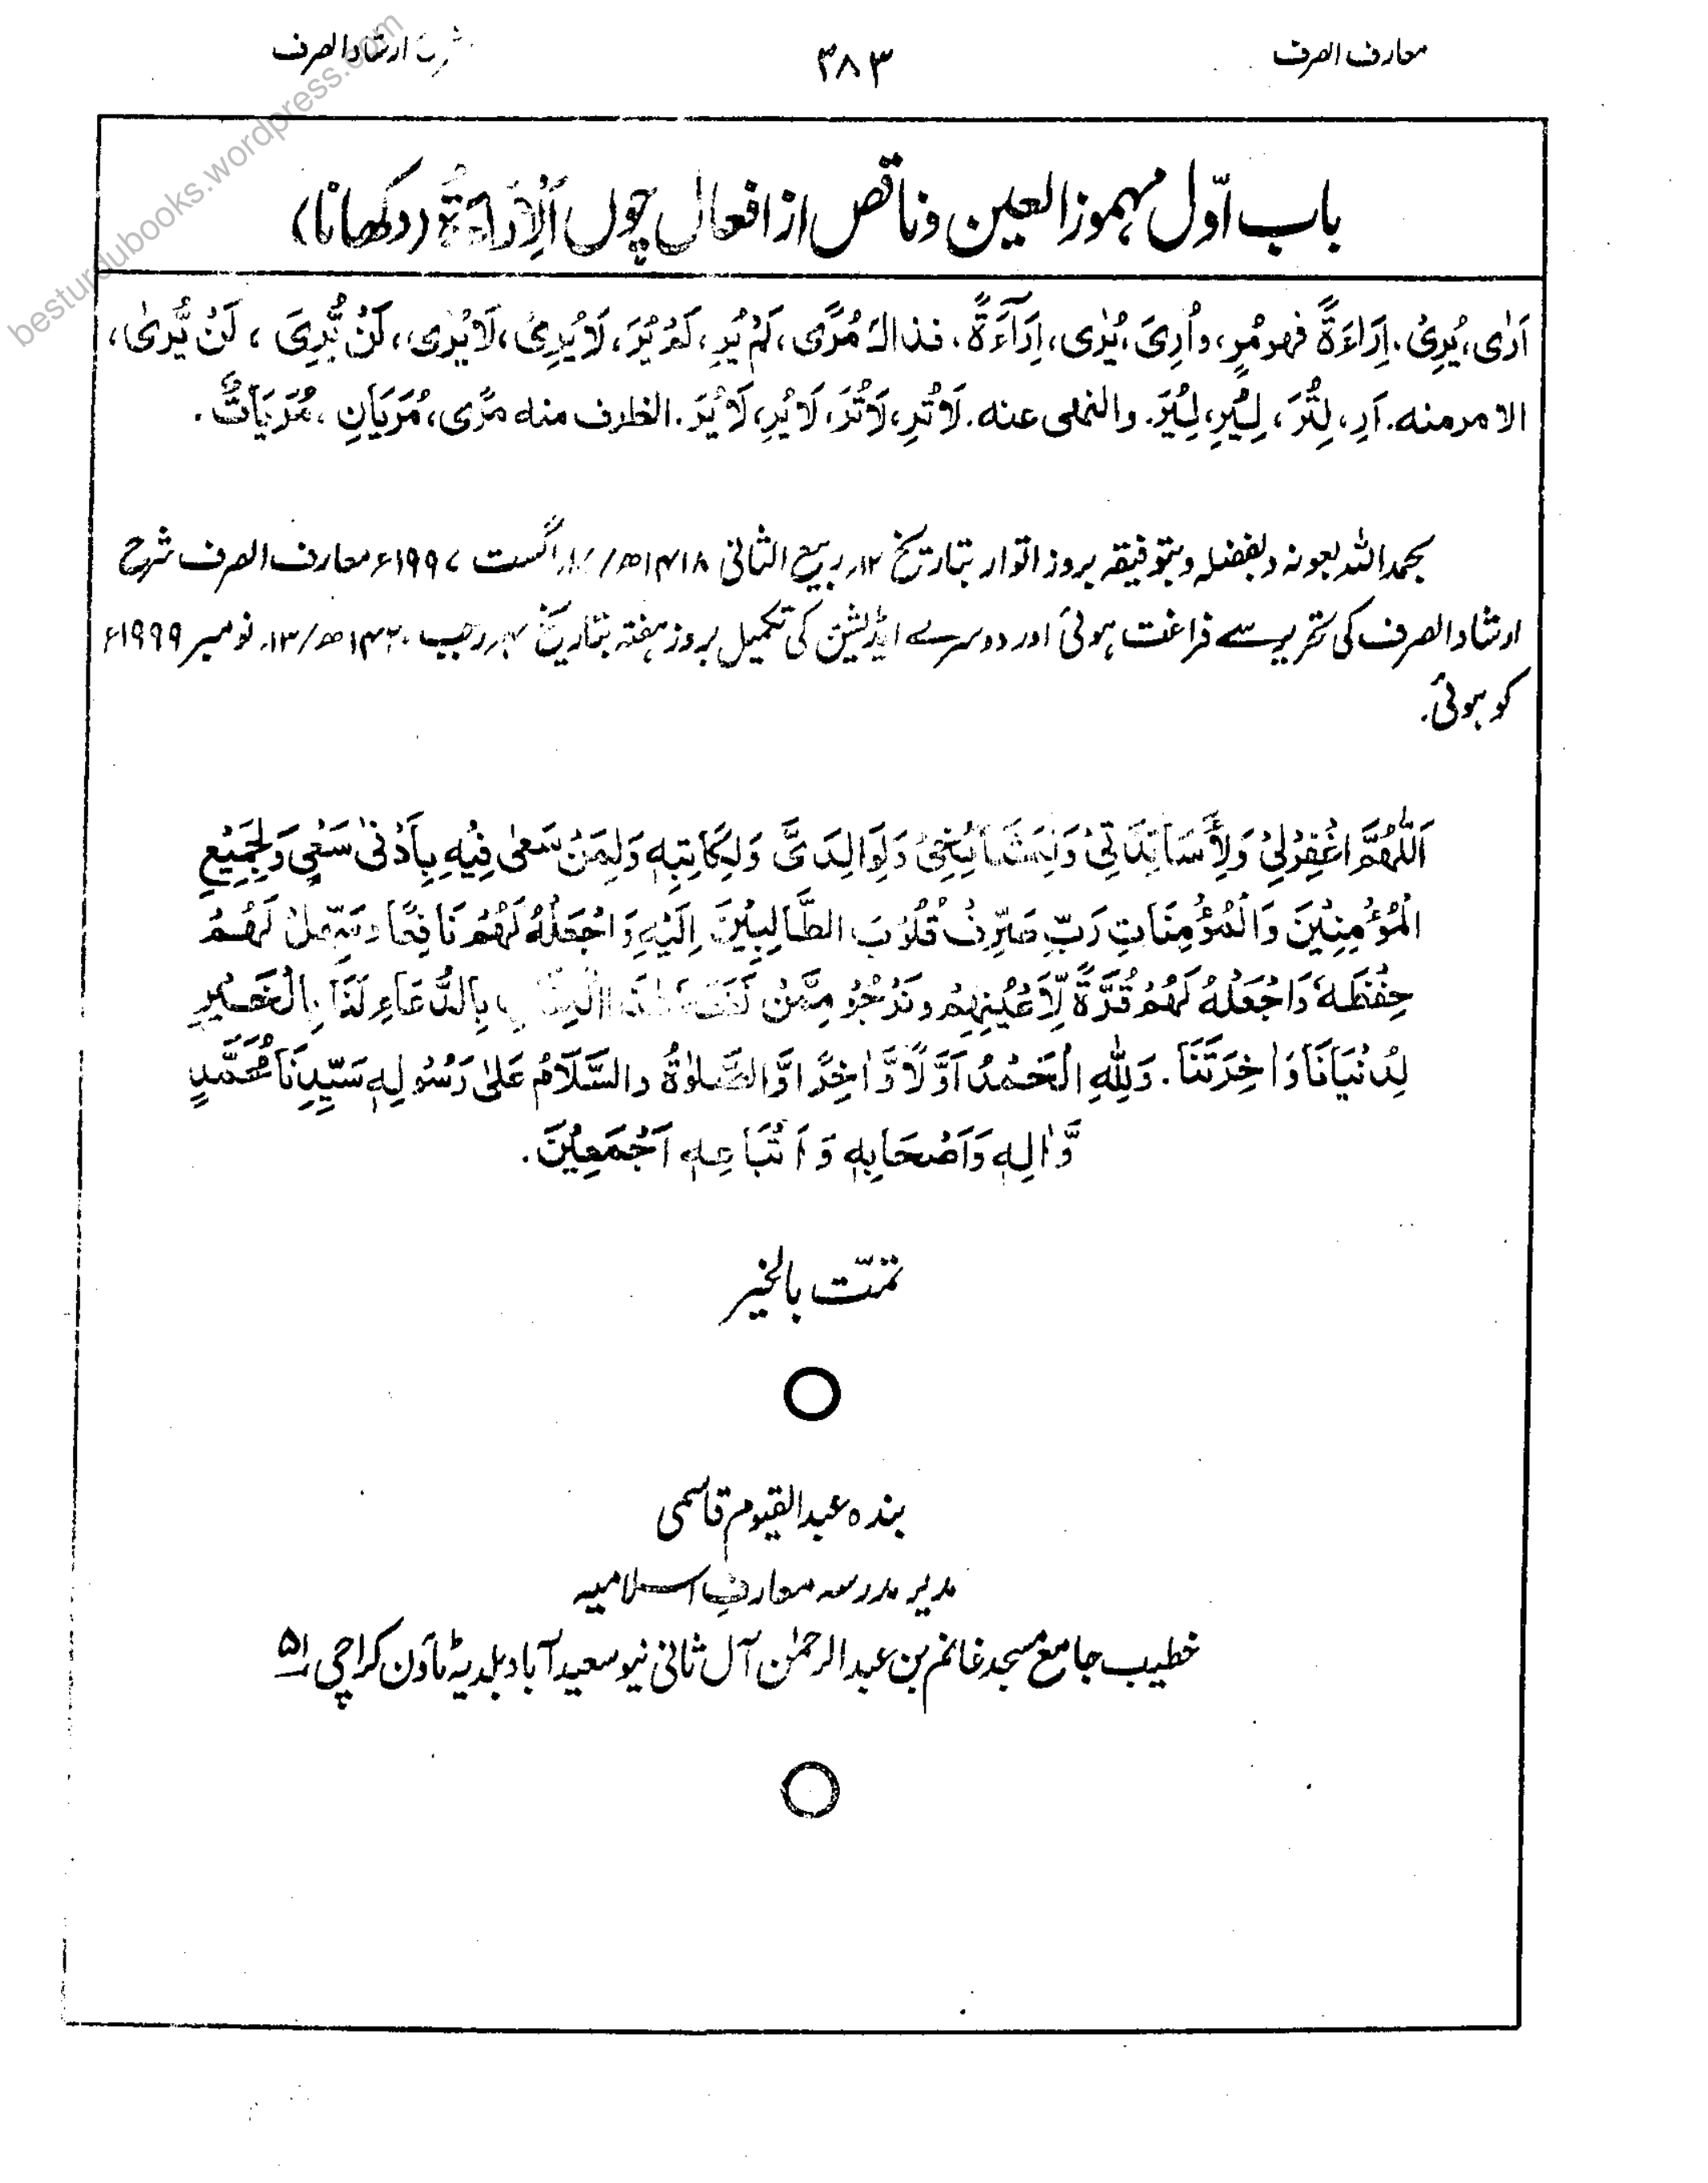 معارف الصرف ۳۸۳ شرح ارشاد الصرف
besturdubooks.wordpress.com
باب اوّل مہموز العین و ناقص از افعال چوں اَلْاِرَاءَةُ (دکھانا)
اَرٰی، یُرِیْ. اِرَاءَةً فهو مُرٍ، و اُرِیَ، یُرٰی، اِرَآءَةً. فذاك مُرًی، لَمْ یُرِ، لَمْ یُرَ، لَا یُرِیْ، لَا یُرٰی، لَنْ یُّرِیَ، لَنْ یُّرٰی،
الامر منه. اَرِ، لِتُرَ، لِیُرِ، لِیُرَ. والنهی عنه. لَا تُرِ، لَا تُرَ، لَا یُرِ، لَا یُرَ. الظرف منه مُرًی، مُرَیَانِ، مُرَیَاتٌ.
بحمد اللہ بعونہ و بفضلہ و بتوفیقہ بروز اتوار بتاریخ ۱۲؍ ربیع الثانی ۱۴۱۸ھ / اگست ۱۹۹۷ء معارف الصرف شرح
ارشاد الصرف کی تحریر سے فراغت ہوئی اور دوسرے ایڈیشن کی تکمیل بروز ہفتہ بتاریخ رجب ۱۴۲۰ھ / ۱۳؍ نومبر ۱۹۹۹ء
کو ہوئی.
اَللّٰهُمَّ اغْفِرْلِیْ وَلِأَسَاتِذَتِیْ وَلِمَشَائِخِیْ وَلِوَالِدَیَّ وَلِکَاتِبِهٖ وَلِمَنْ سَعٰی فِیْهِ بِاَدْنٰی سَعْیٍ وَلِجَمِیْعِ
الْمُؤْمِنِیْنَ وَالْمُؤْمِنَاتِ رَبِّ صَرِّفْ قُلُوْبَ الطَّالِبِیْنَ اِلَیْهِ وَاجْعَلْهُ لَهُمْ نَافِعًا وَسَهِّلْ لَهُمْ
حِفْظَهٗ وَاجْعَلْهُ لَهُمْ قُرَّةً لِّاَعْیُنِهِمْ وَنَرْجُوْ مِمَّنْ هٰذَا الْکِتَابِ بِالدُّعَاءِ لَنَا بِالْخَیْرِ
لِدُنْیَانَا وَاٰخِرَتِنَا. وَلِلّٰهِ الْحَمْدُ اَوَّلًا وَّاٰخِرًا وَّالصَّلٰوةُ وَالسَّلَامُ عَلٰی رَسُوْلِهٖ سَیِّدِنَا مُحَمَّدٍ
وَّاٰلِهٖ وَاَصْحَابِهٖ وَ اَتْبَاعِهٖ اَجْمَعِیْنَ.
تمّت بالخیر
بندہ عبدالقیوم قاسمی
مدیر مدرسہ معارفِ اسلامیہ
خطیب جامع مسجد غانم بن عبدالرحمٰن آل ثانی نیو سعید آباد بلدیہ ٹاؤن کراچی ۵۱